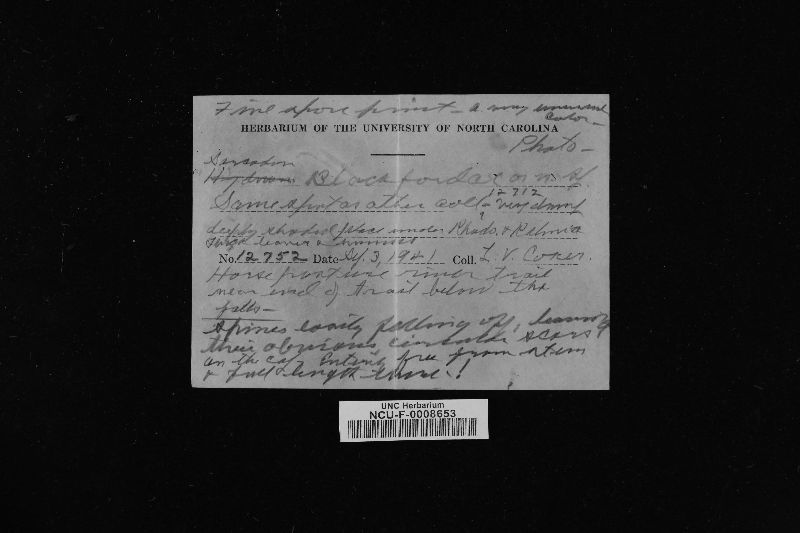 Fine spore print – a very unusual
color –
HERBARIUM OF THE UNIVERSITY OF NORTH CAROLINA
Photo –
Sarcodon
Hydnum Blackfordae
Same spot as other coll – 12712 very damp
deeply shaded place under Rhodo. & Kalmia
leaves &
No. 12752 Date 3, 1941 Coll. L. V. Coker.
Horse pasture river trail
near end of trail below the
falls –
Spines easily falling off, leaving
their obvious circular scars
on the cap. Entirely free from stem
& full length there!
UNC Herbarium
NCU-F-0008653